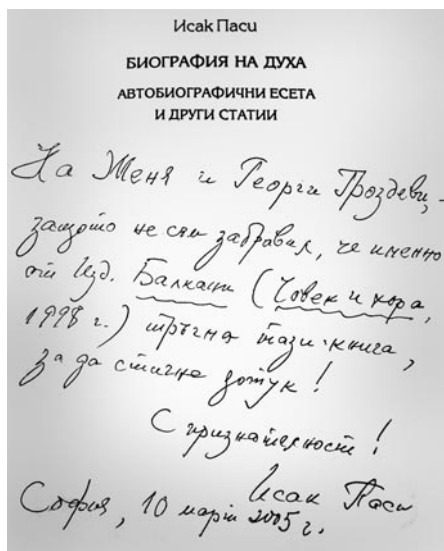 Исак Паси
БИОГРАФИЯ НА ДУХА
АВТОБИОГРАФИЧНИ ЕСЕТА
И ДРУГИ СТАТИИ
На Женя и Георги Гроздеви, -
защото не съм забравил, че именно
от Изд. Балкани (Човек и хора,
1998 г.) тръгна тази книга,
за да стигне дотук!
С признателност!
Исак Паси
София, 10 март 2005 г.